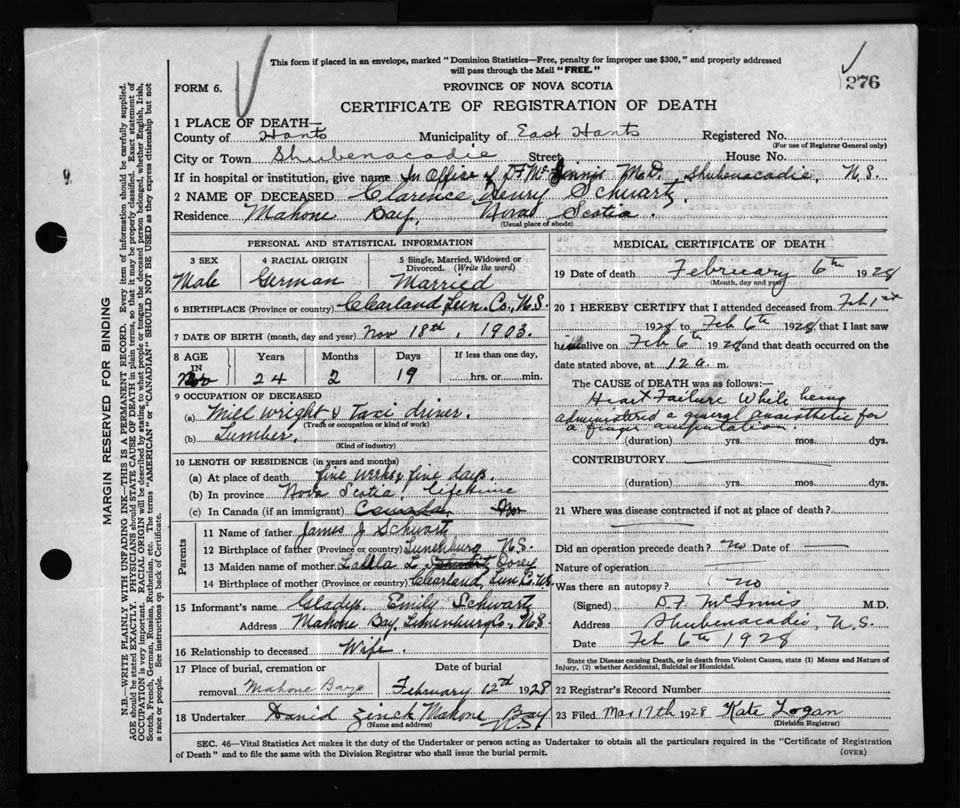 This form if placed in an envelope, marked "Dominion Statistics—Free, penalty for improper use $300," and properly addressed
will pass through the Mail "FREE."
276
FORM 6.
PROVINCE OF NOVA SCOTIA
CERTIFICATE OF REGISTRATION OF DEATH
1 PLACE OF DEATH—
County of Hants Municipality of East Hants Registered No.
(For use of Registrar General only)
City or Town Shubenacadie Street House No.
If in hospital or institution, give name In Office of D F McInnis M.D. Shubenacadie, N.S.
2 NAME OF DECEASED Clarence Henry Schwartz.
Residence Mahone Bay, Nova Scotia.
(Usual place of abode)
PERSONAL AND STATISTICAL INFORMATION
3 SEX 4 RACIAL ORIGIN 5 Single, Married, Widowed or
Divorced. (Write the word)
Male German Married
6 BIRTHPLACE (Province or country) Clearland Lun. Co., N.S.
7 DATE OF BIRTH (month, day and year) Nov 18th, 1903.
8 AGE IN Years Months Days If less than one day,
24 2 19 hrs. or min.
9 OCCUPATION OF DECEASED
(a) Mill wright & Taxi driver.
(Trade or occupation or kind of work)
(b) Lumber.
(Kind of industry)
10 LENGTH OF RESIDENCE (in years and months)
(a) At place of death five weeks five days.
(b) In province Nova Scotia. lifetime
(c) In Canada (if an immigrant) Canada
Parents
11 Name of father James J Schwartz
12 Birthplace of father (Province or country) Lunenburg N.S.
13 Maiden name of mother L.
14 Birthplace of mother (Province or country) Clearland, Lun Co. N.S.
15 Informant's name Gladys Emily Schwartz
Address Mahone Bay, Lunenburg Co., N.S.
16 Relationship to deceased Wife.
17 Place of burial, cremation or Date of burial
removal Mahone Bay February 12th 1928
18 Undertaker David Zinck Mahone Bay
(Name and address) N.S.
MEDICAL CERTIFICATE OF DEATH
19 Date of death February 6th 1928
(Month, day and year)
20 I HEREBY CERTIFY that I attended deceased from Feb 1st
1928 to Feb 6th 1928 that I last saw
him alive on Feb 6th 1928 and that death occurred on the
date stated above, at 12 a. m.
The CAUSE OF DEATH was as follows:—
Heart Failure While being
administered a general anaesthetic for
a finger amputation.
(duration) yrs. mos. dys.
CONTRIBUTORY
(duration) yrs. mos. dys.
21 Where was disease contracted if not at place of death?
Did an operation precede death? no Date of —
Nature of operation —
Was there an autopsy? no
(Signed) D F McInnis M.D.
Address Shubenacadie, N.S.
Date Feb 6th 1928
State the Disease causing Death, or in death from Violent Causes, state (1) Means and Nature of
Injury, (2) whether Accidental, Suicidal or Homicidal.
22 Registrar's Record Number
23 Filed Mar 17th 1928 Kate Logan
(Division Registrar)
SEC. 46—Vital Statistics Act makes it the duty of the Undertaker or person acting as Undertaker to obtain all the particulars required in the "Certificate of Registration
of Death" and to file the same with the Division Registrar who shall issue the burial permit.
(OVER)
MARGIN RESERVED FOR BINDING
N.B.—WRITE PLAINLY WITH UNFADING INK—THIS IS A PERMANENT RECORD. Every item of information should be carefully supplied.
AGE should be stated EXACTLY. PHYSICIANS should STATE CAUSE OF DEATH in plain terms, so that it may be properly classified. Exact statement of
OCCUPATION is very important. RACIAL ORIGIN will be described by stating to what people or tongue the deceased person belonged, whether English, Irish,
Scotch, French, German, Russian, Ruthenian, etc. The terms "AMERICAN" or "CANADIAN" SHOULD NOT BE USED as they express citizenship but not
a race or people. See instructions on back of Certificate.